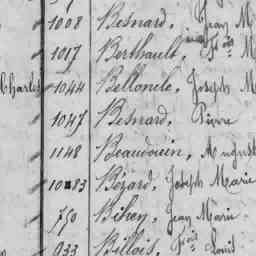 1008 Besnard, Jean M
1017 Berthault, Fois M
Charles 1044 Bellonele, Joseph M
1047 Besnard, Pierre
1148 Beaudouin, August
1083 Bézard, Joseph Marie
770 Bihey, Jean Marie
933 Billois, Fois Louis